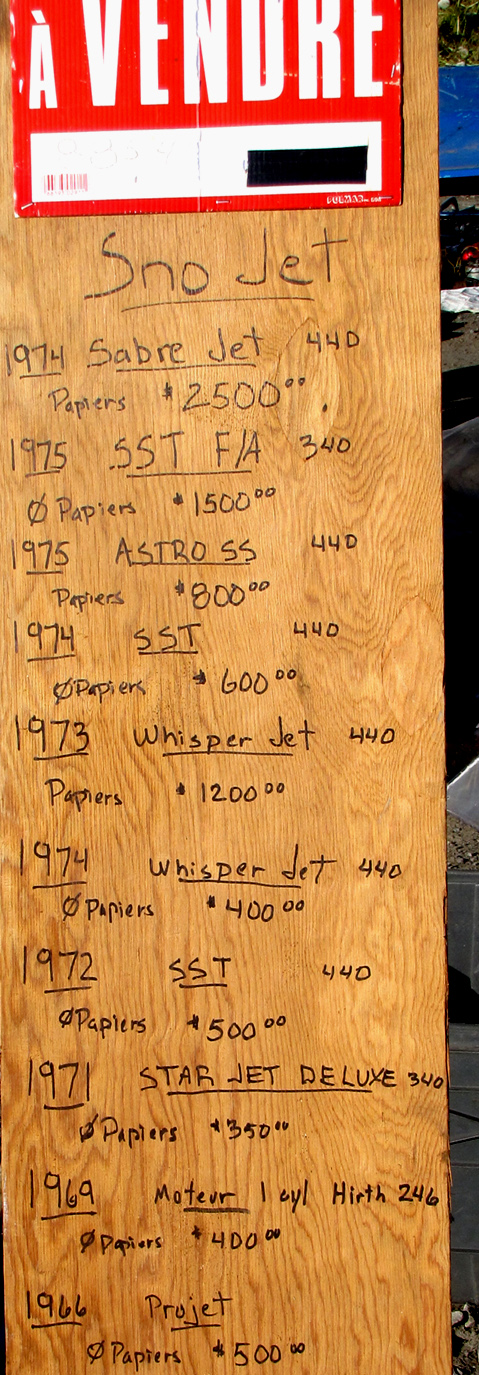 À VENDRE
Sno Jet
1974 Sabre Jet 440
Papiers $2500⁰⁰
1975 SST F/A 340
Ø Papiers $1500⁰⁰
1975 ASTRO SS 440
Papiers $800⁰⁰
1974 SST 440
Ø Papiers $600⁰⁰
1973 Whisper Jet 440
Papiers $1200⁰⁰
1974 Whisper Jet 440
Ø Papiers $400⁰⁰
1972 SST 440
Ø Papiers $500⁰⁰
1971 STAR JET DELUXE 340
Ø Papiers $350⁰⁰
1969 Moteur 1 cyl Hirth 246
Ø Papiers $400⁰⁰
1966 Projet
Ø Papiers $500⁰⁰